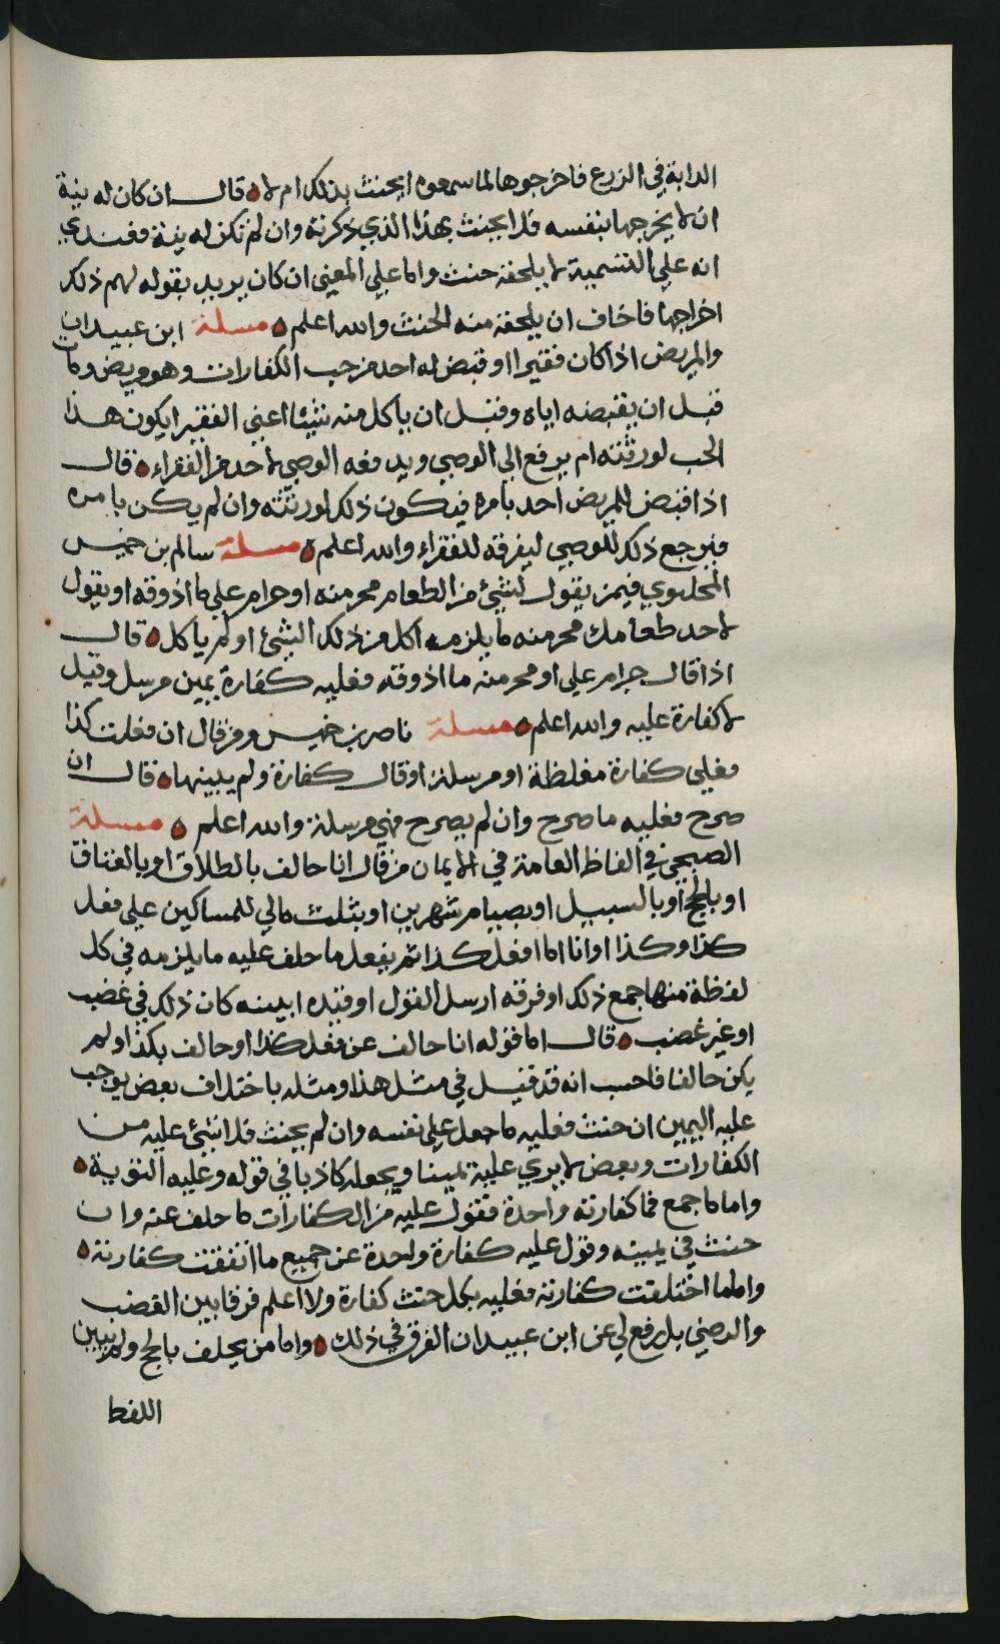 الدابة في الزرع فاخرجوها لما سمعوه ايحنث بذلك ام لا ه قال ان كان له نية
ان لا يخرجها بنفسه فلا يحنث بهذا الذي ذكرته وان لم تكن له نية فعندي
انه علي التسمية لا يلحقه حنث واما علي المعني ان كان يريد بقوله لهم ذلك
اخراجها فاخاف ان يلحقه منه الحنث والله اعلم ه مسلة ابن عبيدان
والمريض اذا كان فقيرا او قبض له احد من حب الكفارات وهو مريض ومات
قبل ان يقبضه اياه وقبل ان ياكل منه شيئا اعني الفقير ايكون هذا
الحب لورثته ام يرفع الي الوصي ويدفعه الوصي لاحد من الفقراء ه قال
اذا قبض للمريض احد بامره فيكون ذلك لورثته وان لم يكن بامره
فيرجع ذلك للوصي ليفرقه للفقراء والله اعلم ه مسلة سالم بن خميس
المحليوي فيمن يقول لشيئ من الطعام محرمنه او حرام علي ما اذوقه او يقول
لاحد طعامك محرمنه ما يلزمه اكل من ذلك الشئ او لم ياكل ه قال
اذا قال حرام علي او محرمنه ما اذوقه فعليه كفارة يمين مرسل وقيل
لا كفارة عليه والله اعلم ه مسلة ناصر بن خميس ومن قال ان فعلت كذا
فعلي كفارة مغلظة او مرسلة او قال كفارة ولم يبينها ه قال ان
صرح فعليه ما صرح وان لم يصرح فهي مرسلة والله اعلم ه مسلة
الصبحي في الفاظ العامة في الايمان من قال انا حالف بالطلاق او بالعتاق
او بالحج او بالسبيل او بصيام شهرين او بثلث مالي للمساكين علي فعل
كذا وكذا او انا اما افعل كذا ثم يفعل ما حلف عليه ما يلزمه في كل
لفظة منها جمع ذلك او فرقه ارسل القول او قيده ابينه كان ذلك في غضب
او غير غضب ه قال اما قوله انا حالف عن فعل كذا او حالف بكذا ولم
يكن حالفا فاحسب انه قد قيل في مثل هذا ومثله باختلاف بعض يوجب
عليه اليمين ان حنث فعليه ما جعل علي نفسه وان لم يحنث فلا شئ عليه من
الكفارات وبعض لا يري عليه يمينا ويجعله كاذبا في قوله وعليه التوبة ه
واما ما جمع فما كفارته واحدة فقول عليه من الكفارات ما حلف عنه وان
حنث في يمينه وقول عليه كفارة واحدة عن جميع ما اتفقت كفارته ه
واما ما اختلفت كفارته فعليه بكل حنث كفارة ولا اعلم فرقا بين الغضب
والرضي بل رفع لي عن ابن عبيدان الفرق في ذلك ه واما من يحلف بالحج ولم يبين
اللفظ